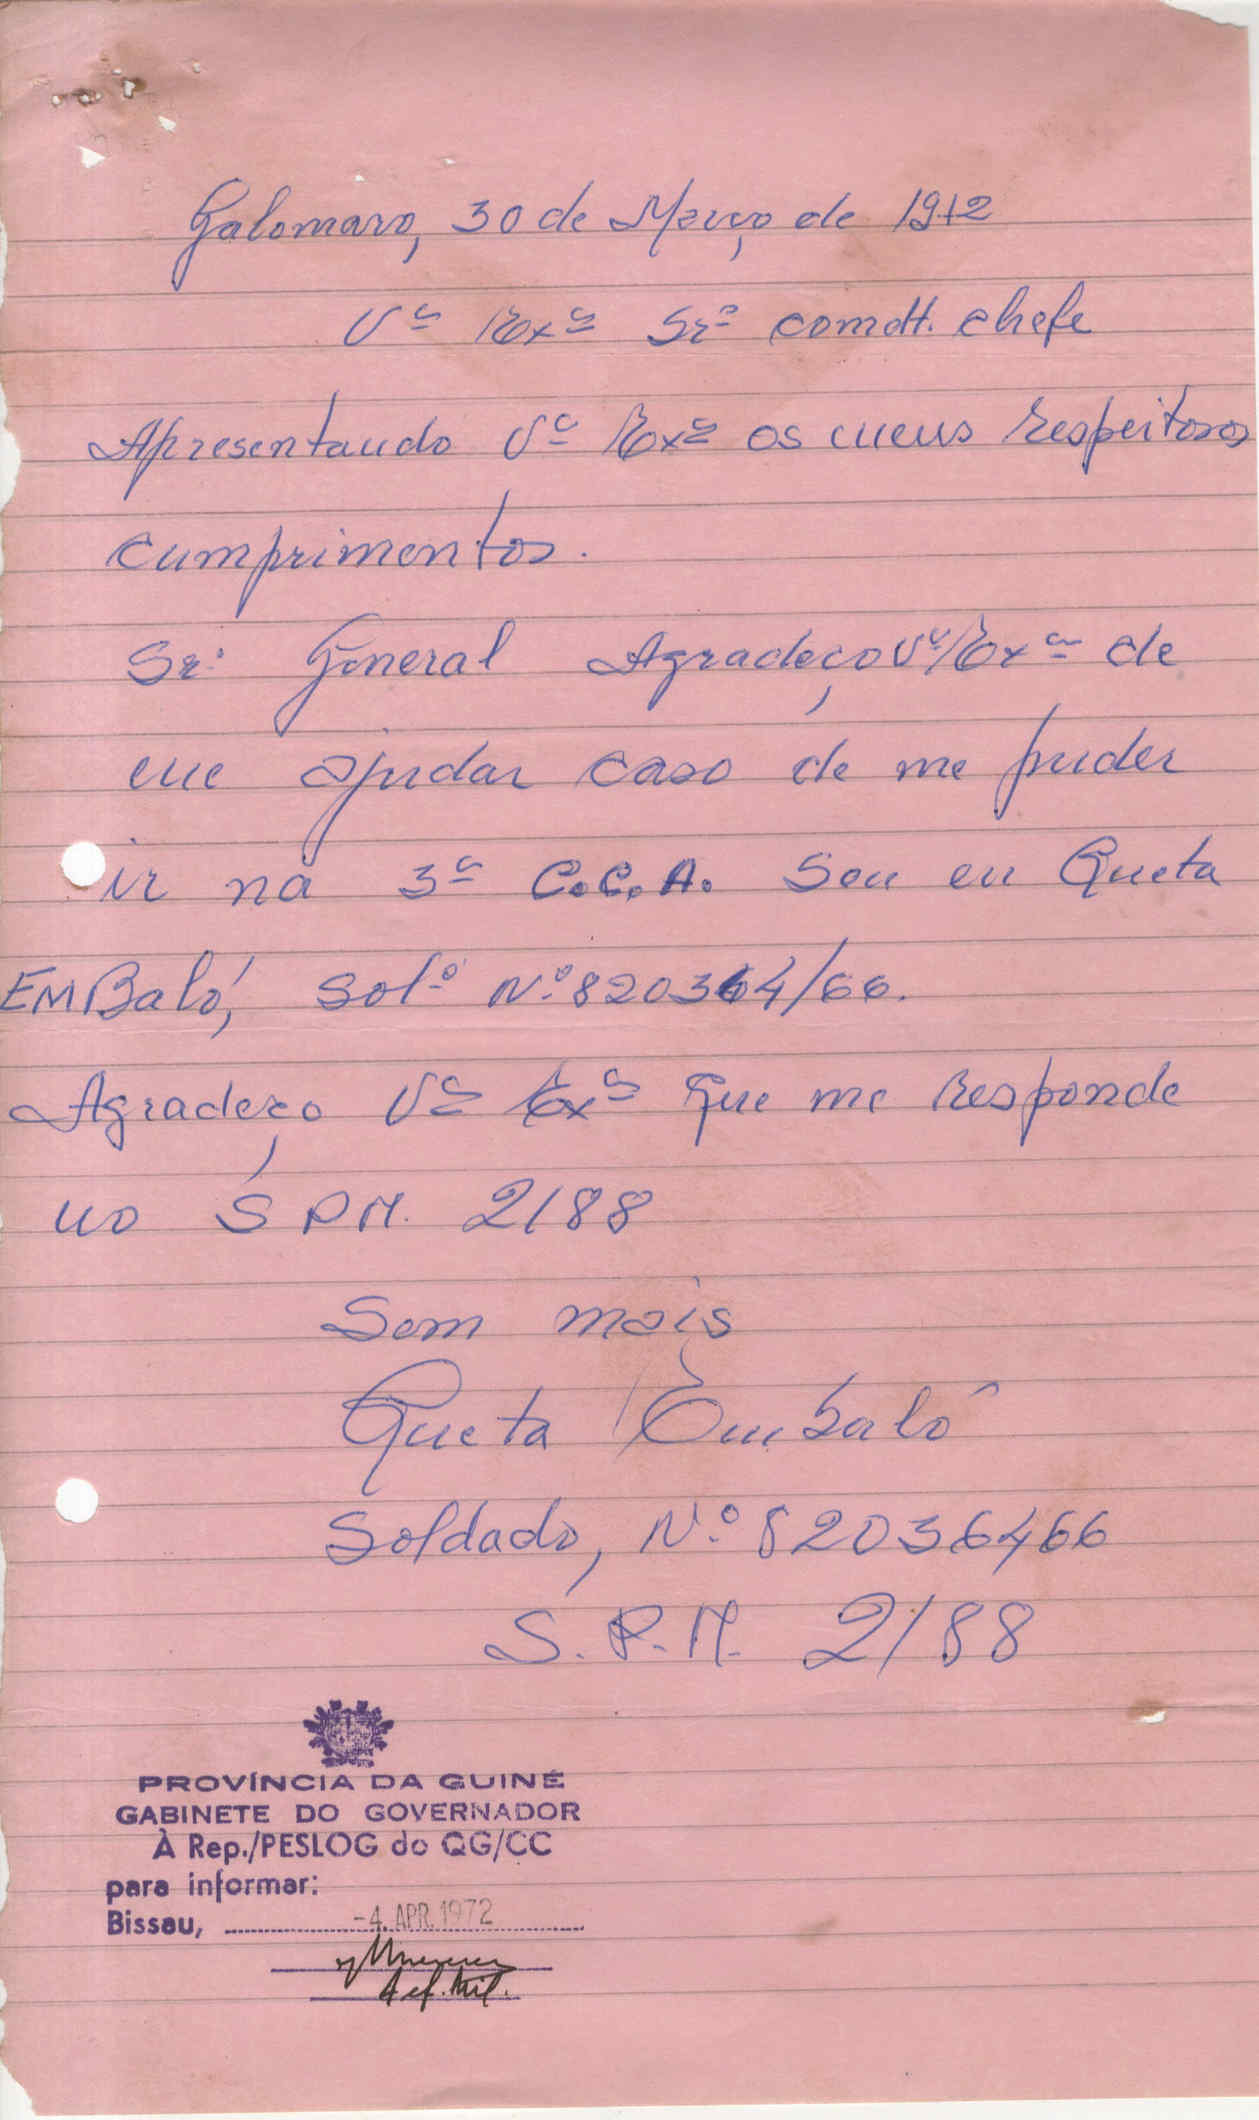 Galomaro, 30 de Março de 1972
Vª Exª Srº comdt. chefe
Apresentando Vª Exª os meus respeitosos
cumprimentos.
Sr. General Agradeço Vª Exª de
me ajudar caso de me puder
ir na 3ª C.C.A. Sou eu Queta
EMBaló, solº Nº 820364/66.
Agradeço Vª Exª que me responde
no S P M. 2188
Sem mais
Queta Embalô
Soldado, Nº 82036466
S.P.M. 2188
PROVÍNCIA DA GUINÉ
GABINETE DO GOVERNADOR
À Rep./PESLOG do QG/CC
para informar:
Bissau, -4. APR. 1972